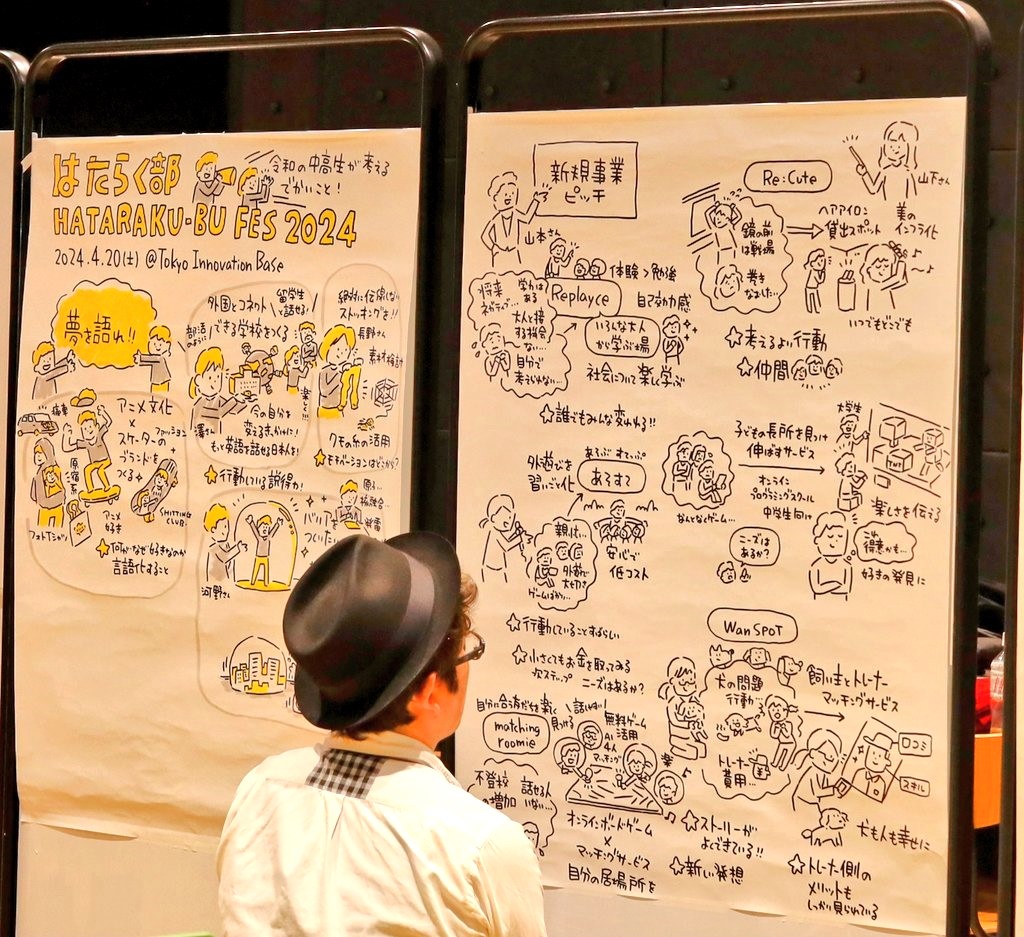 はたらく部
令和の中高生が考える
でかいこと!
HATARAKU-BU FES 2024
2024.4.20(土) @Tokyo Innovation Base
夢を語れ!!
外国とコネクト
留学生
と話せる!
部活
のように!
できる学校をつくる
澤さん
楽しく!!
今の自分を
変えるきっかけに!
もっと英語を話せる日本人を!
☆行動している説得力!
絶対に伝線しない
ストッキングを!!
長野さん
素材検討
クモの糸の活用
☆モチベーションはどこから?
アニメ文化
×
スケーターの
ファッション
ブランドを
つくる
原宿系
アニメ
好き
SHITTING
CLUB
フォトTシャツ
言語化すること
バリアを
つくりたい
核融合
発電
河野さん
新規事業
ピッチ
山本さん
体験>勉強
Replayce
自己効力感
将来
ネガティブ…
学力はある
大人と接
する機会
ない…
自分で
考えられない…
いろんな大人
から学ぶ場
社会について楽しく学ぶ
☆誰でもみんな変われる!!
Re:Cute
山下さん
鏡の前
は戦場
巻き
なおした…
ヘアアイロン
貸出スポット
美の
インフラ化
いつでもどこでも
☆考えるよい行動
☆仲間
外遊びを
習いごと化
あるぷ すてっぷ
あるすて
親忙しい…
外遊び
大切さ
ゲームばかり…
安心で
低コスト
☆行動していることすばらしい
☆小さくてもお金を取ってみる
次ステップ ニーズはあるか?
子どもの長所を見つけ
伸ばすサービス
大学生
オンライン
プログラミングスクール
中学生向け
なんとなくゲーム…
楽しさを伝える
ニーズは
あるか?
これ
得意かも…
好きの発見に
自分に合う
matching
roomie
無料ゲーム
AI活用
4人
マッチング
不登校
の増加
話せる人
いない…
オンラインボードゲーム
×
マッチングサービス
自分の居場所を
☆ストーリーが
よくできている!!
☆新しい発想
Wan SPOT
犬の問題
行動…
トレーナー
費用…
飼い主とトレーナー
マッチングサービス
口コミ
スキル
犬も人も幸せに
☆トレーナー側の
メリットも
しっかり見られている